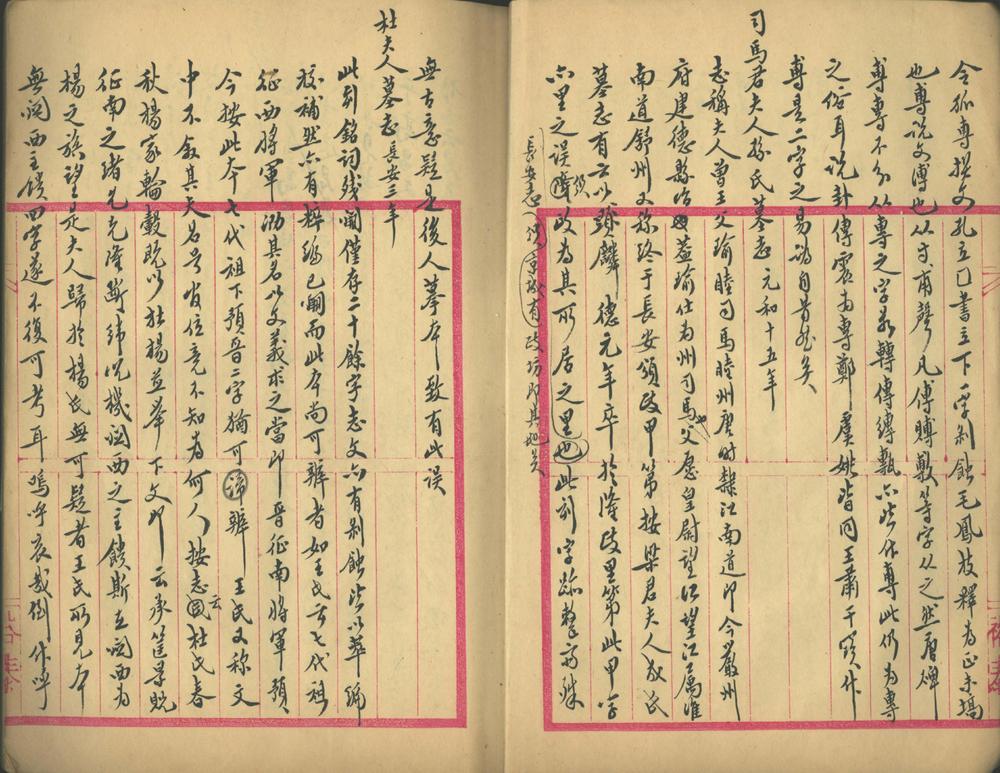 令狐專撰文孔立已書立下一字剝蝕毛鳳枝釋為正未塙
也專說文傅也从寸甫聲凡傅賻敷等字从之然唐碑
專專不分从專之字若轉傳縛甎亦皆作專此仍為專
之俗耳說卦傳震為專鄭虞姚皆同王肅干寶作
專是二字之易訛自昔然矣
司馬君夫人孫氏墓志 元和十五年
志稱夫人曾王父瑜睦司馬睦州唐時隸江南道即今嚴州
府建德縣治蓋瑜仕為州司馬父愿皇尉望江望江屬淮
南道舒州又稱終于長安頒政甲第按梁君夫人張氏
墓志有云以頭麟德元年卒於隆政里第此甲字
亦里之誤頒政為其所居之里也此刻字跡整齊殊
長安志頒政坊即其地矣
無古意疑是後人摹本致有此误
杜夫人墓志 長安三年
此刻銘詞殘闕僅存二十餘字志文亦有剝蝕皆以萃編
校補然亦有粹編已闕而此本尚可辨者如王氏云七代祖
征西將軍泐其名以文義求之當即晋征南將軍預
今按此本七代祖下預晋二字猶可諦辨 王氏又稱文
中不敘其夫名号省位竟不知為何人按志云杜氏春
秋楊家輪轂既以杜楊並舉下文即云承筐景貺
征南之緒允克隆斷緯咒機関西之主饋斯在関西為
楊之族望是夫人歸於楊氏無可疑者王氏所見本
無関西主饋四字遂不復可考耳嗚呼哀哉倒作呼